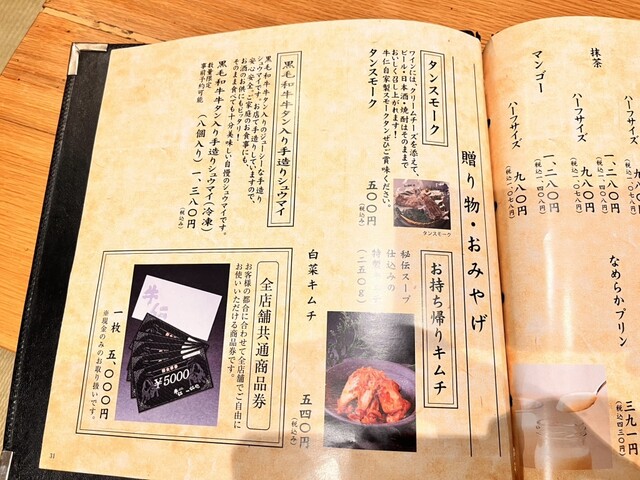 抹茶
ハーフサイズ
一、二八〇円
(税込一、四〇八円)
九八〇円
(税込一、〇七八円)
マンゴー
ハーフサイズ
一、二八〇円
(税込一、四〇八円)
九八〇円
(税込一、〇七八円)
なめらかプリン
三九一円
(税込四三〇円)
贈り物・おみやげ
タンスモーク
ワインには、クリームチーズを添えて、
ビール・日本酒・焼酎はそのままで
おいしく召し上がれます!
牛仁自家製スモークタンぜひご賞味ください。
タンスモーク
五〇〇円
(税込み)
タンスモーク
黒毛和牛牛タン入り手造りシュウマイ
黒毛和牛牛タン入りのジューシーな手造り
シュウマイです。お店で手造りしていますので、
安心安全。ご家庭のお食事にも、
お酒のお供にもピッタリ!
そのまま食べても十分美味しい自慢のシュウマイです。
黒毛和牛牛タン入り手造りシュウマイ(冷凍)
(八個入り)
一、三八〇円
(税込み)
数量限定
事前予約可能
お持ち帰りキムチ
秘伝スープ
仕込みの
(二五〇g)
白菜キムチ
五四〇円
(税込み)
全店舗共通商品券
お客様の都合に合わせて全店舗でご自由に
お使いいただける商品券です。
一枚
五、〇〇〇円
※現金のみのお取り扱いです。
牛仁
¥5000
31